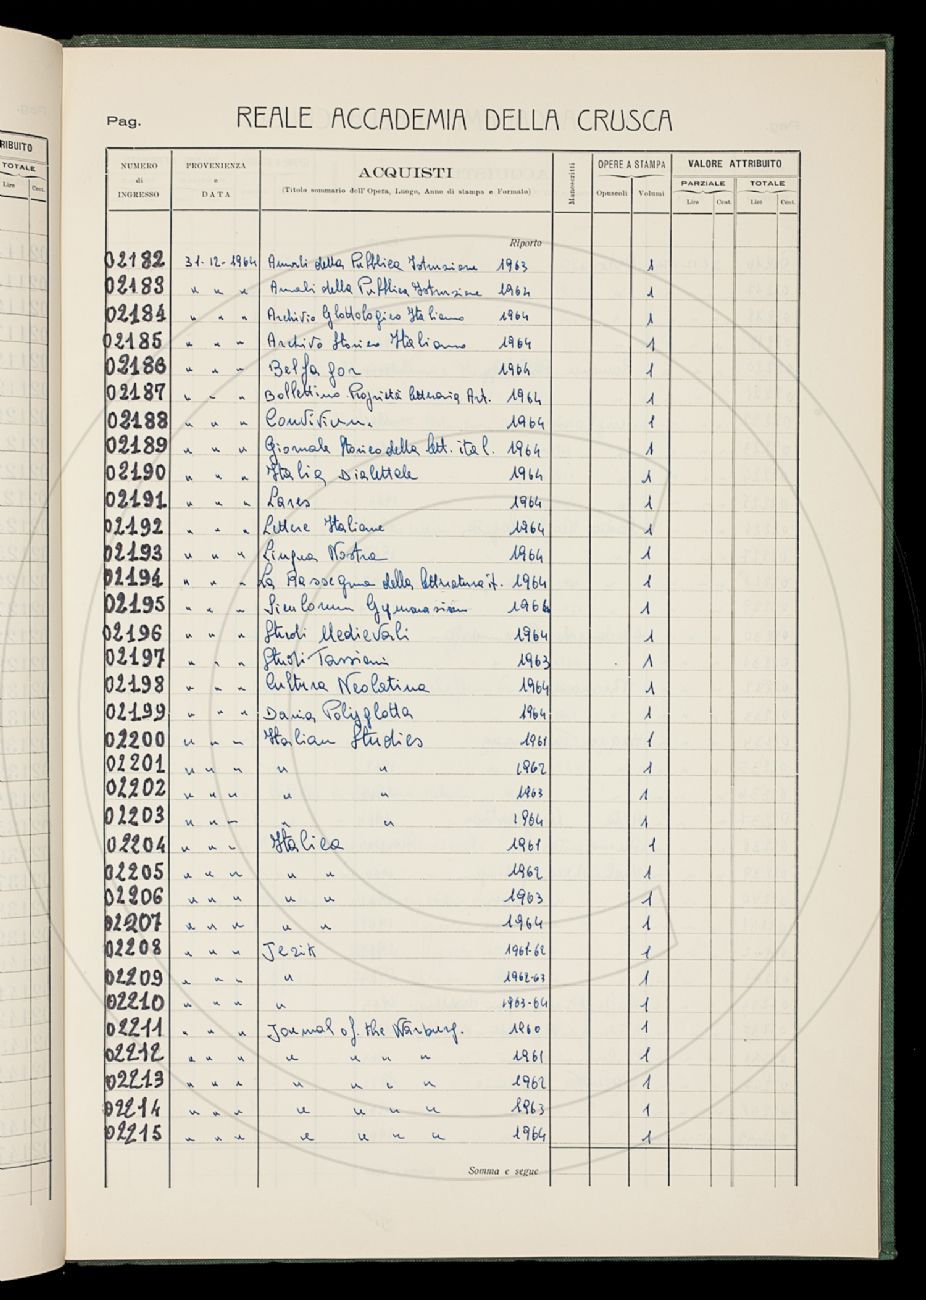 RIBUITO
TOTALE
Lire Cent.
Pag. REALE ACCADEMIA DELLA CRUSCA
NUMERO di INGRESSO PROVENIENZA e DATA ACQUISTI (Titolo sommario dell'Opera, Luogo, Anno di stampa e Formato) Manoscritti OPERE A STAMPA Opuscoli Volumi VALORE ATTRIBUITO PARZIALE Lire Cent. TOTALE Lire Cent.
Riporto
02182 31-12-1964 Annali della Pubblica Istruzione 1963 1
02183 " " " Annali della Pubblica Istruzione 1964 1
02184 " " " Archivio Glottologico Italiano 1964 1
02185 " " " Archivio Storico Italiano 1964 1
02186 " " " Belfagor 1964 1
02187 " " " Bollettino Proprietà letteraria Art. 1964 1
02188 " " " Convivium 1964 1
02189 " " " Giornale storico della lett. ital. 1964 1
02190 " " " Italia Dialettale 1964 1
02191 " " " Lares 1964 1
02192 " " " Lettere Italiane 1964 1
02193 " " " Lingua Nostra 1964 1
02194 " " " La Rassegna della letteratura it. 1964 1
02195 " " " Siculorum Gymnasium 1964 1
02196 " " " Studi Medievali 1964 1
02197 " " " Studi Tassiani 1963 1
02198 " " " Cultura Neolatina 1964 1
02199 " " " Dania Polyglotta 1964 1
02200 " " " Italian Studies 1961 1
02201 " " " " " 1962 1
02202 " " " " " 1963 1
02203 " " " " " 1964 1
02204 " " " Italica 1961 1
02205 " " " " " 1962 1
02206 " " " " " 1963 1
02207 " " " " " 1964 1
02208 " " " Jezik 1961-62 1
02209 " " " " 1962-63 1
02210 " " " " 1963-64 1
02211 " " " Journal of the Warburg. 1960 1
02212 " " " " " " " 1961 1
02213 " " " " " " " 1962 1
02214 " " " " " " " 1963 1
02215 " " " " " " " 1964 1
Somma e segue